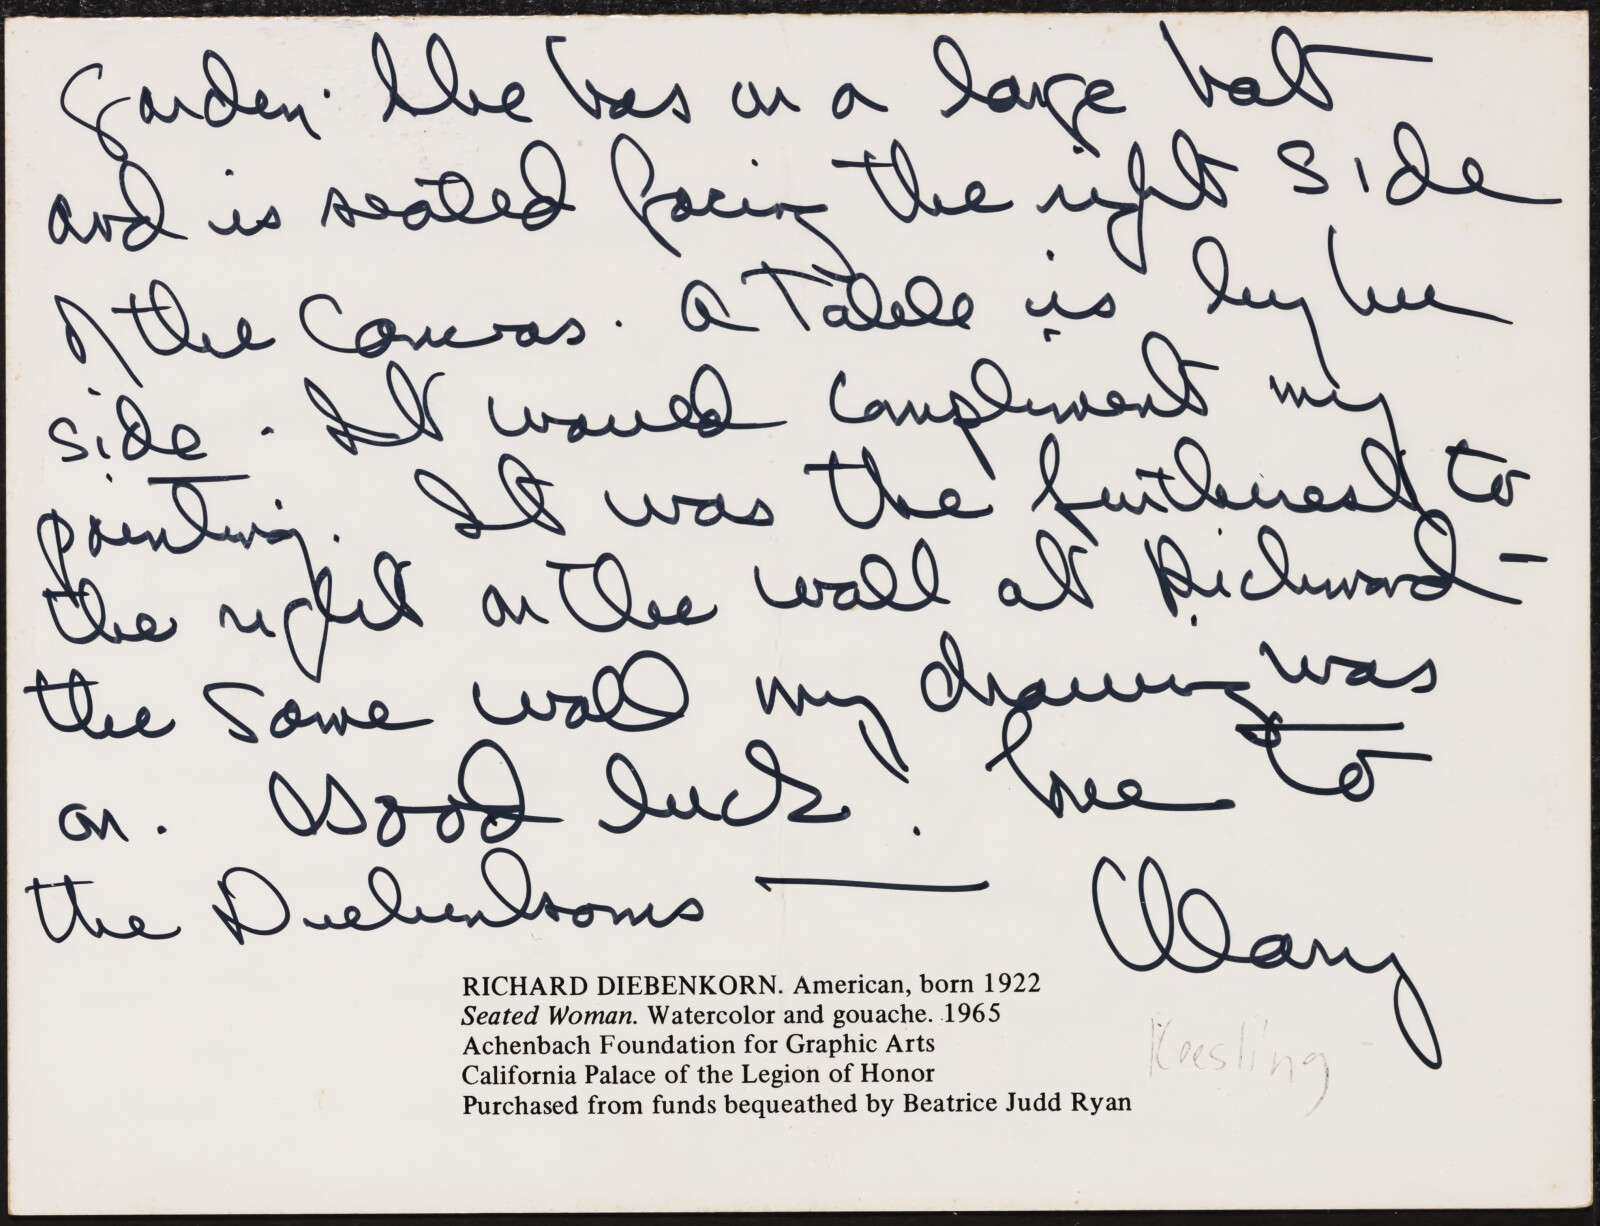 garden. She was in a large hat
and is seated facing the right side
of the canvas. A table is by her
side. It would compliment my
painting. It was the furtherest to
the right on the wall at Richmond -
the same wall my drawing was
on. Good luck. Love to
the Diebenkorns — Mary
RICHARD DIEBENKORN. American, born 1922
Seated Woman. Watercolor and gouache. 1965
Achenbach Foundation for Graphic Arts
California Palace of the Legion of Honor
Purchased from funds bequeathed by Beatrice Judd Ryan
Keesling